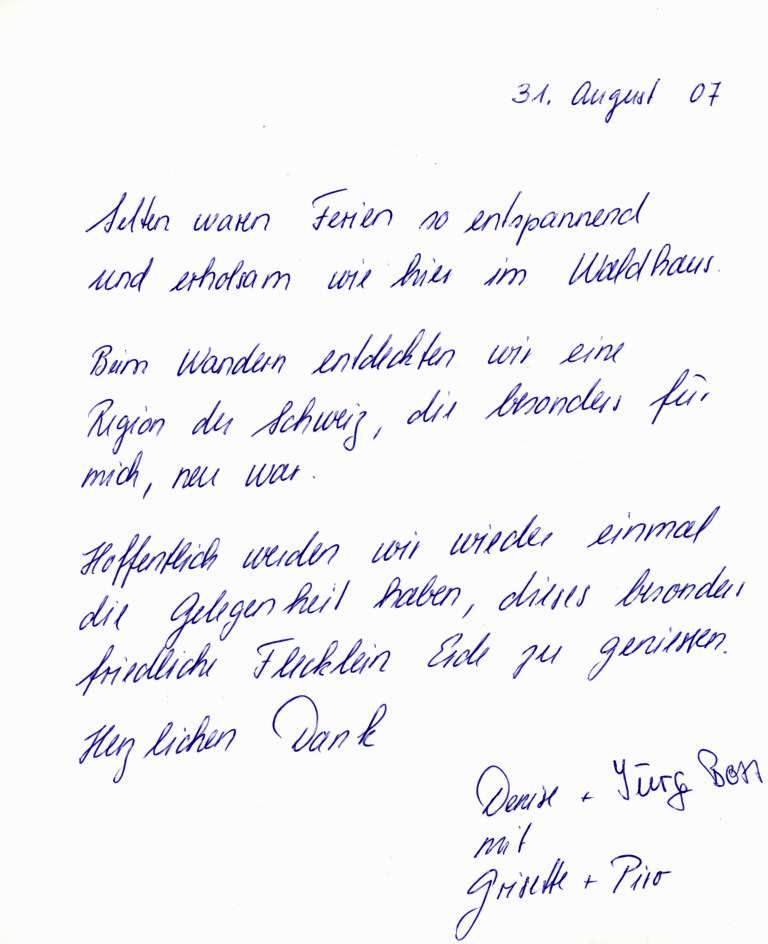 31. August 07
Selten waren Ferien so entspannend
und erholsam wie hier im Waldhaus.
Beim Wandern entdeckten wir eine
Region der Schweiz, die besonders für
mich, neu war.
Hoffentlich werden wir wieder einmal
die Gelegenheit haben, dieses besonders
friedliche Flecklein Erde zu geniessen.
Herzlichen Dank
Denise + Jürg Boss
mit
Grisette + Piro